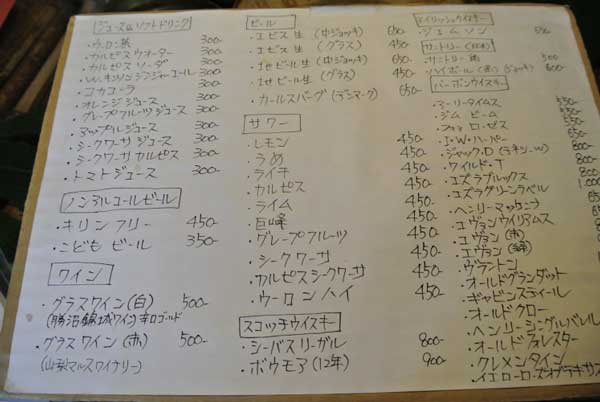 ジュース&ソフトドリンク
・ウーロン茶 300-
・カルピスウオーター 300-
・カルピスソーダ 300-
・W.キンソンジンジャーエール 300-
・コカコーラ 300-
・オレンジジュース 300-
・グレープフルーツジュース 300-
・アップルジュース 300-
・シークワーサジュース 300-
・シークワーサカルピス 300-
・トマトジュース 300-
ノンアルコールビール
・キリンフリー 450-
・こどもビール 350-
ワイン
・グラスワイン(白) 500-
(勝沼錦城ワイン)辛口ゴールド
・グラスワイン(赤) 500-
(山梨マルスワイナリー)
ビール
・エビス生(中ジョッキ) 650-
・エビス生(グラス) 450-
・生ビール生(中ジョッキ)
・生ビール生(グラス) 450-
・カールスバーグ(デンマーク) 650-
サワー
・レモン 450-
・うめ 450-
・ライチ 450-
・カルピス 450-
・ライム 450-
・巨峰 450-
・グレープフルーツ 450-
・シークワーサ 450-
・カルピスシークワーサ 450-
・ウーロンハイ 450-
スコッチウイスキー
・シーバスリーガル 800-
・ボウモア(12年) 900-
アイリッシュウイスキー
・ジェムソン 550-
サントリー
・サントリー 500
・ハイボール ジョッキ 600-
バーボンウイスキー
・アーリータイムス 550-
・ジムビーム 550-
・フォアローゼス 550-
・I・W・ハーパー
・ジャックD(テネシーW)
・ワイルド・T 800-
・エズラブルックス
・エズラグリーンラベル 800-
・ヘンリーマッケンナ 1,000
・エヴァンウイリアムス
・エヴァン(赤)
・エヴァン
・ヴァントン
・オールドグランダット
・ギャビンスティール
・オールドクロー
・ヘンリーシングルバレル
・オールドフォレスター
・クレメンタイン
・イエローローズオブテキサス